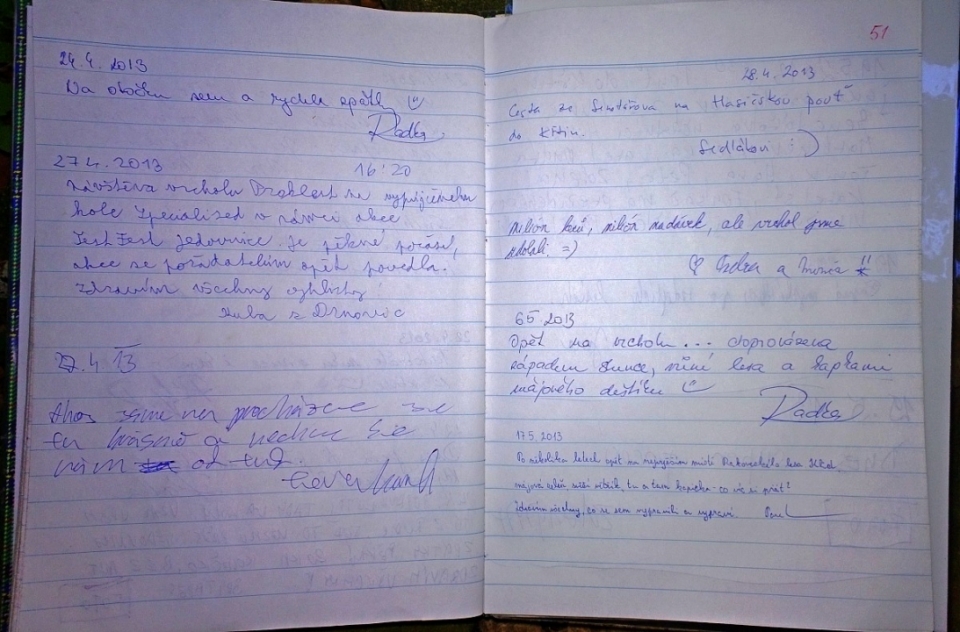 24.4. 2013
Na otočku sem a rychle zpátky
Radka
27.4. 2013 16:20
Návštěva vrcholu na vypůjčeném
kole Specialized v rámci akce
Test Fest Jedovnice. Je pěkné počasí,
akce se pořadatelům opět povedla.
Zdravím všechny
Kuba z Drnovic
27.4 13
Ahoj jsme na procházce je
tu krásně a nechce se
nám od tud.
51
28.4. 2013
Cesta ze Senetářova na Hasičskou pouť
do Křtin.
Sedlákovi :)
milión keců, milión nadávek, ale vrchol jsme
zdolali =)
a !!
6.5 2013
Opět na vrcholu... doprovázena
západem slunce, vůní lesa a kapkami
májového deštíku
Radka
17.5. 2013
Po několika letech opět na nejvyšším místě Drahanská
májová zeleň, tu a tam kapička - co víc si přát?
Zdravím všechny, co se sem vypravili a vypraví.